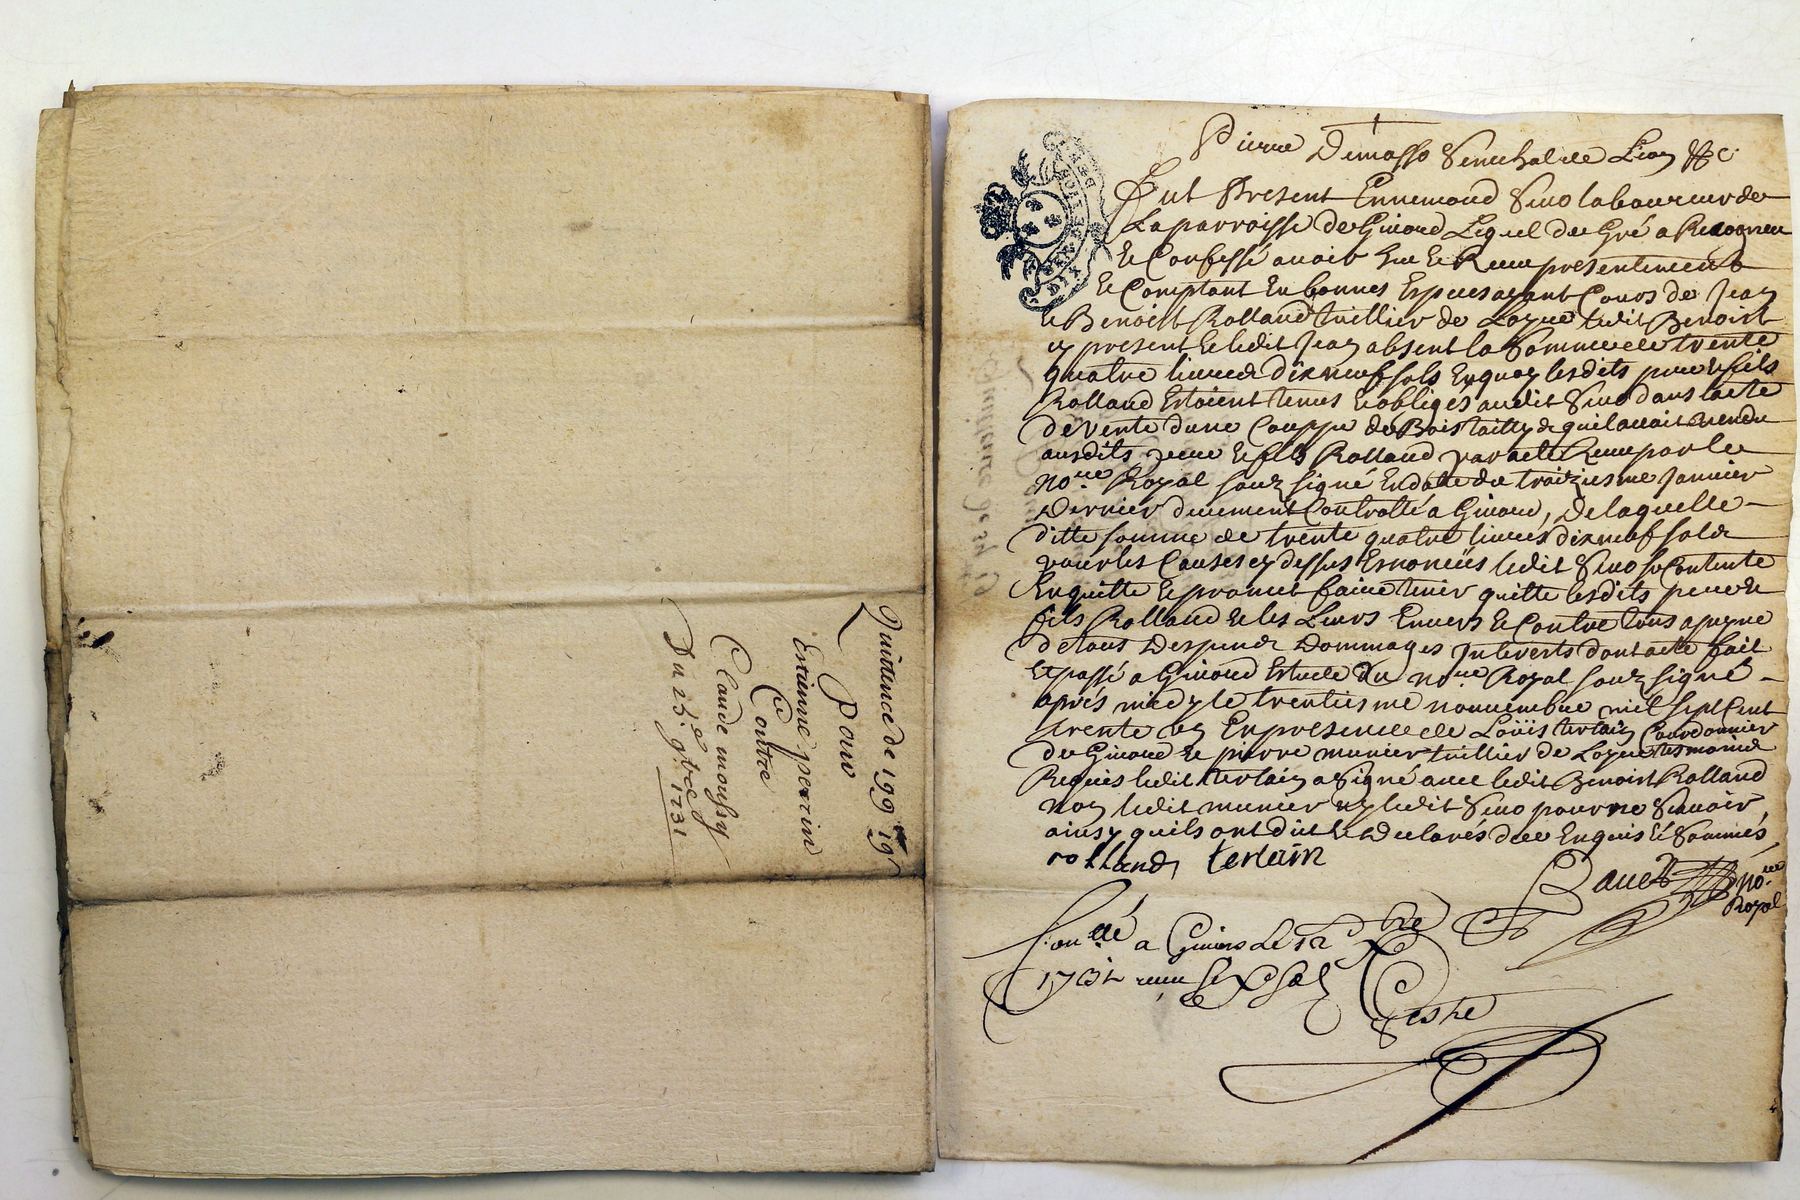 Quittence de 199 19
Pour
Estienne perrin
Contre
Claude moussy
Du 25.e 9.bre 1731
Pierre Demasso Senechal de Lion &c
Fut Present Ennemond Sivo laboureur de
La parroisse de Givord Lequel de Gré a Recogneu
Et Confessé avoir heu et Receu presentement
Et Comptant En bonnes Especes ayant Cours de Jean
et Benoist Rolland tuillier de Loyre ledit Benoist
cy present et ledit Jean absent la Somme de trente
quatre livres dix neuf sols En quoy lesdits pere et fils
Rolland Estoient tenus et obligés audit Sivo dans lacte
de vente dune Couppe de Bois taillys quil auoit vendu
ausdits pere et fils Rolland par acte Receu par le
no.re Royal souz signé En date du traiziesme Janvier
dernier deuement Controllé a Givord, de laquelle
ditte somme de trente quatre livres dix neuf sols
pour les Causes cy dessus Enoncées ledit Sivo se Contente
En quitte et promet faire tenir quitte lesdits pere et
fils Rolland et les Leurs Envers et Contre tous a peyne
de tous Despends Dommages Interests dont acte fait
Et passé a Givord Estude du no.re Royal souz signé
après midy le trentiesme nouembre mil sept Cent
trente un En presence de Loüis tertain Courdonnier
de Givord et pierre munier tuillier de Loyre tesmoins
Requis ledit tertain a Signé avec ledit Benoist Rolland
non ledit munier ny ledit Sivo pour ne Scavoir,
ainsy quils ont dit et declarés de ce Enquis et Sommés
rolland tertain
no.re
Royal
Con.llé a Givors Le 12 Xbre
1731 receu six sols